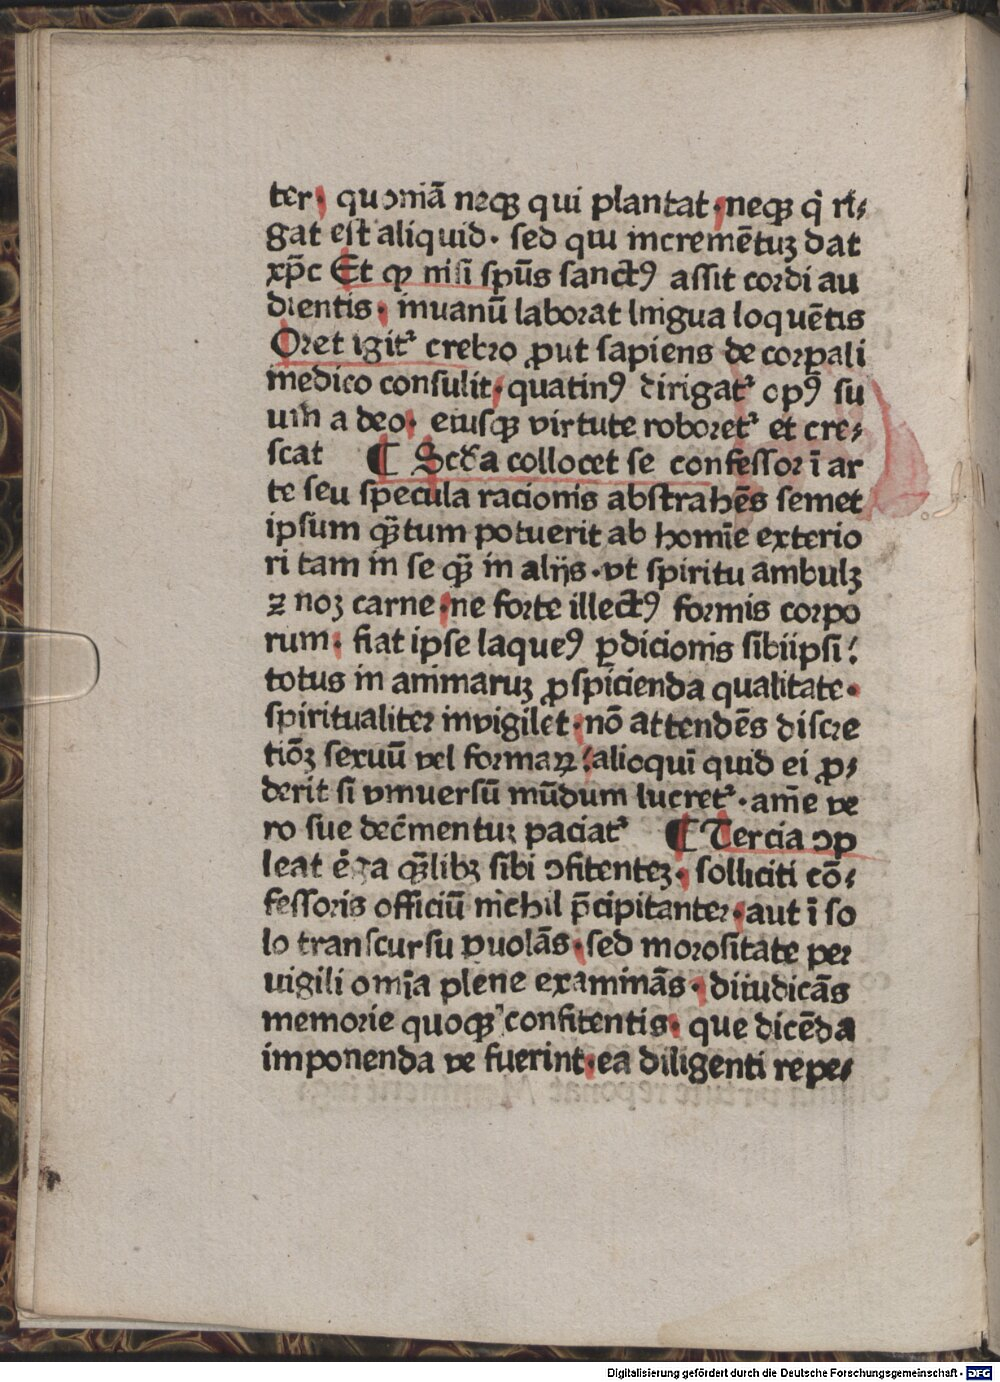 ter· quoniā neqꝫ qui plantat·neqꝫ q̇ ri⸗
gat est aliquid· sed qui incremētuꝫ dat
xp̄c Et ꝙ nisi spūs sanctꝰ assit cordi au
dientis· inuanū laborat lingua loquētis
Oret igit᷑ crebro ꝓut sapiens de corꝑali
medico consulit·quatinꝰ dirigat᷑ opꝰ su
um a deo· eiusqꝫ virtute roboret᷑ et cre⸗
scat ¶ Scd̄a collocet se confessor ī ar
te seu specula racionis abstrahēs semet
ipsum qꝫ̄tum potuerit ab homīe exterio
ri tam in se qꝫ̄ in alijs·vt spiritu ambulꝫ
⁊ noꝫ carne·ne forte illectꝰ formis corpo
rum· fiat ipse laqueꝰ ꝑdicionis sibiipsi⁝
totus in animaruꝫ ꝓspicienda qualitate·
spiritualiter invigilet·nō attendēs discre
tiōꝫ sexuū vel formaꝝ⁝alioquī quid ei ꝓ⸗
derit si vniuersū mūdum lucret᷑·aīe ve
ro sue dec̄mentuꝫ paciat᷑ ¶ Tercia ↄp
leat ēga qꝫ̄libꝫ sibi ↄfitenteꝫ· solliciti cō⸗
fessoris officiū nichil p̄cipitanter·aut ī so
lo transcursu ꝑuolās·sed morositate per
uigili omīa plene examinās· diiudicās
memorie quoqꝫ confitentis· que dicēda
imponenda ve fuerint·ea diligenti repe⸗
Digitalisierung gefördert durch die Deutsche Forschungsgemeinschaft - DFG